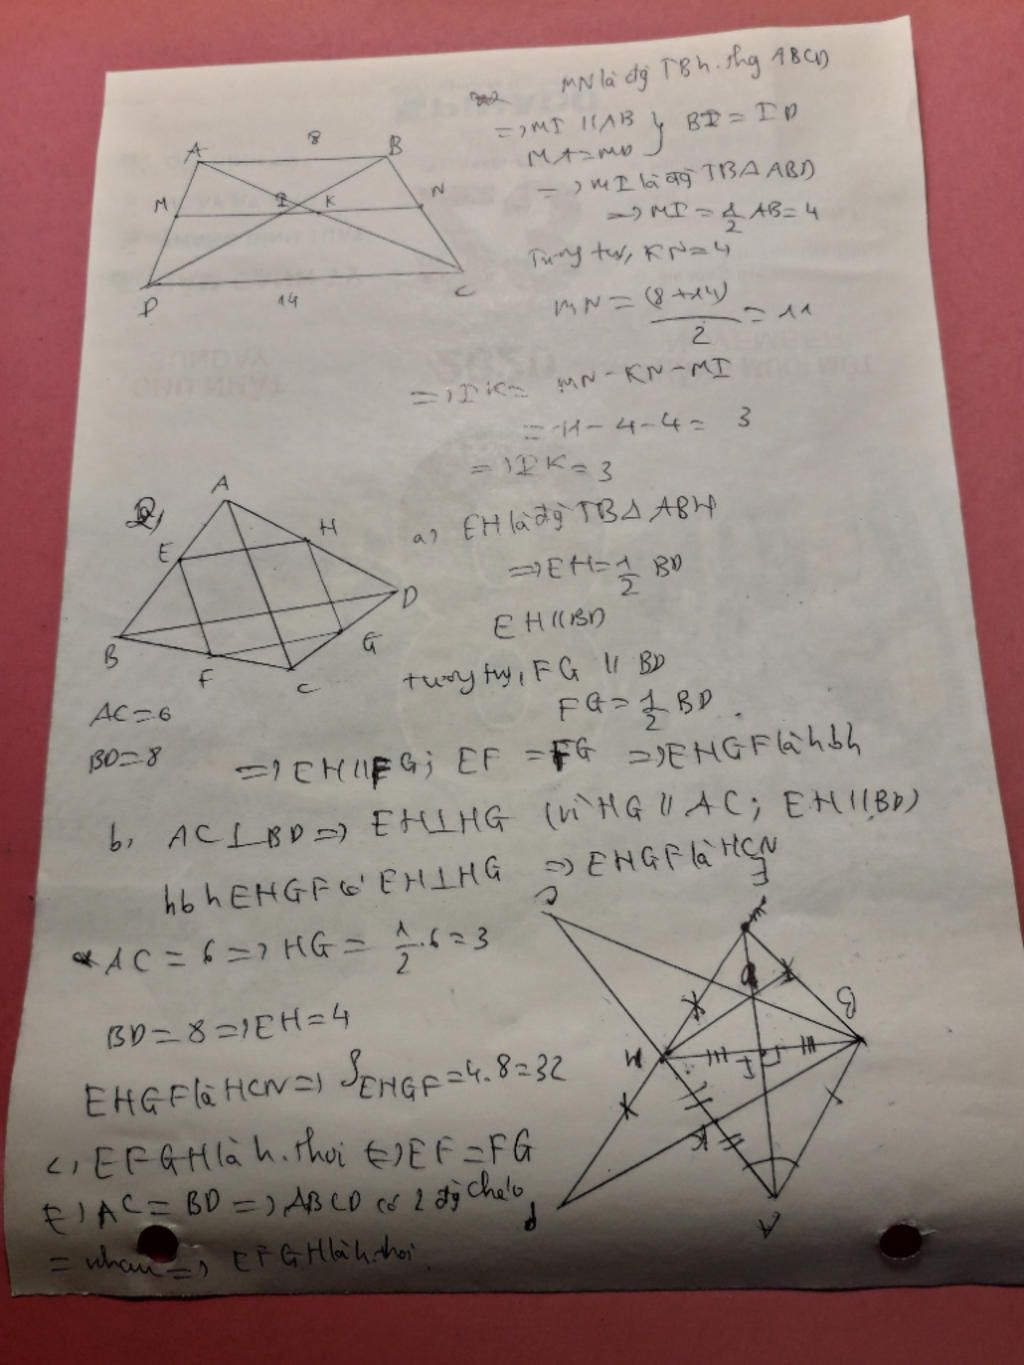 MN là đg TB h.thg ABCD
=> MI // AB } BI = ID
MA = MD
=> MI là đg TB Δ ABD
=> MI = 1/2 AB = 4
Tương tự, KN = 4
MN = (8+14)/2 = 11
=> IK = MN - KN - MI
= 11 - 4 - 4 = 3
=> IK = 3
A 8 B
M I K N
D 14 C
2,
A
E H
D
B G
F C
AC = 6
BD = 8
a, EH là đg TB Δ ABH
=> EH = 1/2 BD
EH // BD
tương tự, FG // BD
FG = 1/2 BD.
=> EH // FG; EF = FG => EHGF là hbh
b, AC ⊥ BD => EH ⊥ HG (vì HG // AC; EH // BD)
hbh EHGF có EH ⊥ HG => EHGF là HCN
* AC = 6 => HG = 1/2 . 6 = 3
BD = 8 => EH = 4
EHGF là HCN => S EHGF = 4.8 = 32
c, EFGH là h.thoi <=> EF = FG
<=> AC = BD => ABCD có 2 đg chéo
= nhau => EFGH là h.thoi.
E
B
H I
K
A